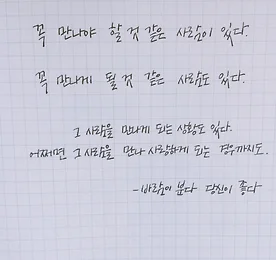 꼭 만나야 할 것 같은 사람이 있다.
꼭 만나게 될 것 같은 사람도 있다.
그 사람을 만나게 되는 상황도 있다.
어쩌면 그 사람을 만나 사랑하게 되는 경우까지도.
-바람이 분다 당신이 좋다